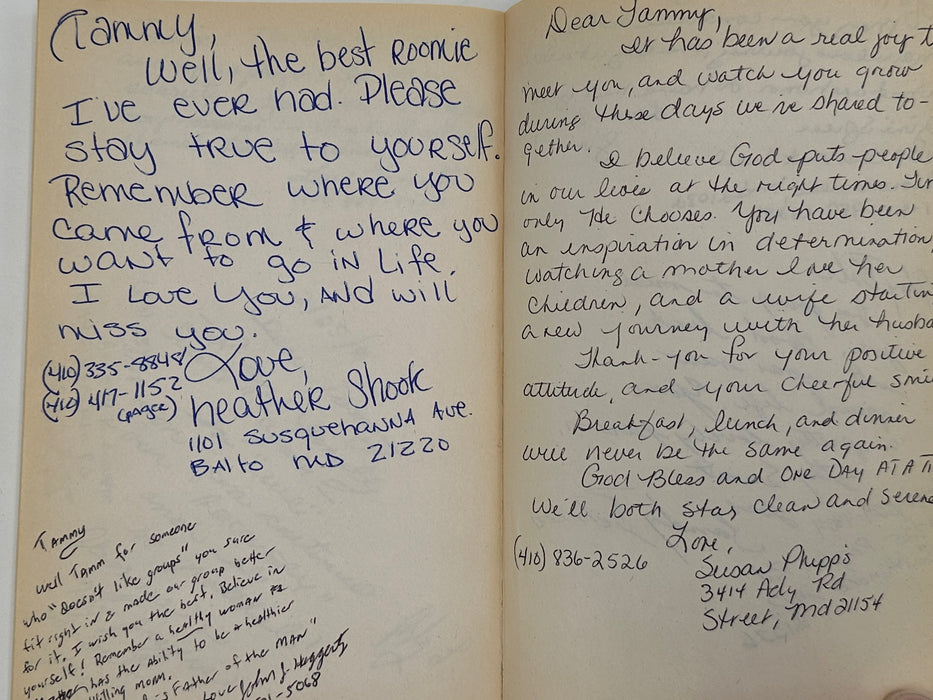 Tammy,
Well, the best Roomie
I've ever had. Please
stay true to yourself.
Remember where you
came from & where you
want to go in Life.
I Love You, And will
miss you.
(410) 335-8848
(410) 417-1152
(page)
Love,
Heather Shook
1101 Susquehanna Ave.
Balto MD 21220
Tammy
Well Tamm for someone
who "Doesn't like groups" you sure
fit right in & made our group better
for it. I wish you the best. Believe in
yourself! Remember a healthy woman &
has the Ability to be a healthier
mom.
Father of the MAN"
Love John J Haggerty
1-5068
Dear Tammy,
It has been a real joy t
meet you, and watch you grow
during these days we've shared to-
gether.
I believe God puts people
in our lives at the right times.
only He Chooses. You have been
an inspiration in determination
Watching a mother love her
Children, and a wife startin
a new journey with her husba
Thank-you for your positive
attitude, and your Cheerful smi
Breakfast, lunch, and dinner
will never be the same again.
God Bless and One Day At A Ti
We'll both stay clean and serene
Love,
(410) 836-2526
Susan Phipps
3414 Ady Rd
Street, Md 21154